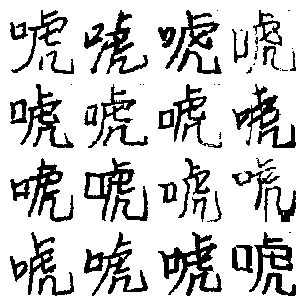 唬唬唬唬
唬唬唬唬
唬唬唬唬
唬唬唬唬